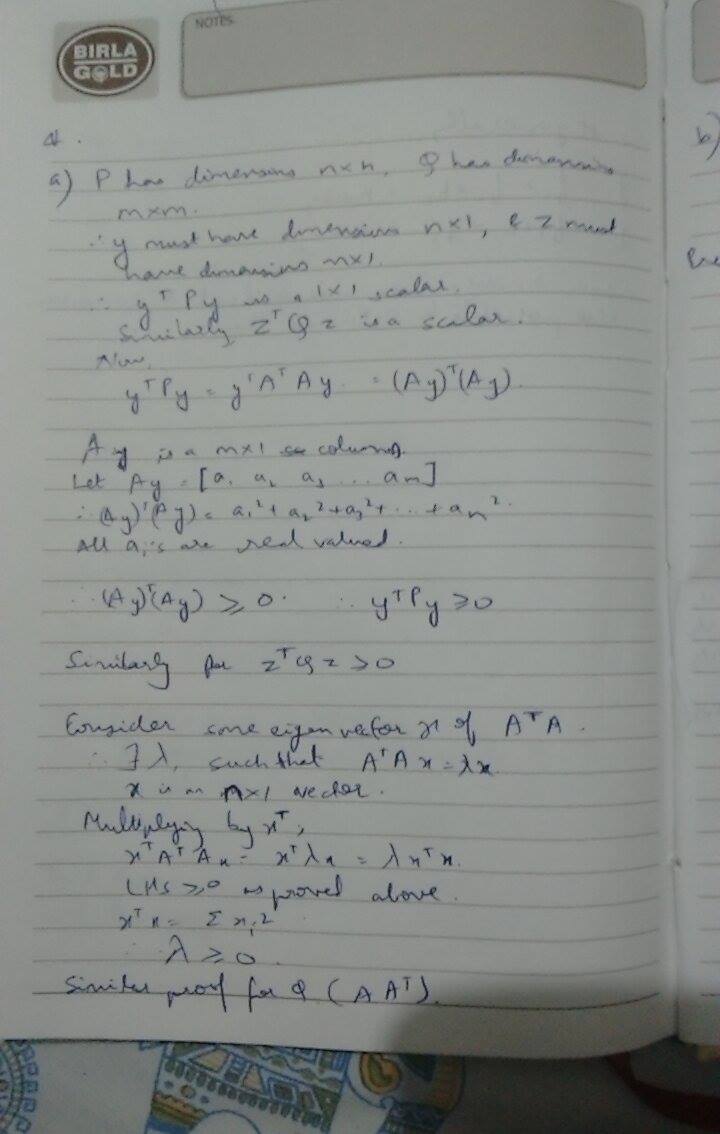 BIRLA
GOLD
NOTES
4.
a) P has dimensions n×n, Q has dimensions
m×m.
∴ y must have dimensions n×1, & z must
have dimensions m×1.
∴ yᵀPy is a 1×1 scalar.
Similarly zᵀQz is a scalar.
Now,
yᵀPy = yᵀAᵀAy = (Ay)ᵀ(Ay).
Ay is a m×1 column.
Let Ay = [a₁ a₂ a₃ ... aₘ]
∴ (Ay)ᵀ(Ay) = a₁² + a₂² + a₃² + ... + aₘ².
All aᵢ's are real valued.
∴ (Ay)ᵀ(Ay) ⩾ 0. ∴ yᵀPy ⩾ 0
Similarly for zᵀQz ⩾ 0
Consider some eigenvector x of AᵀA.
∴ ∃ λ, such that AᵀAx = λx
x is an n×1 vector.
Multiplying by xᵀ,
xᵀAᵀAx = xᵀλx = λxᵀx.
LHS ⩾ 0 as proved above.
xᵀx = Σxᵢ²
∴ λ ⩾ 0.
Similar proof for Q (AAᵀ).
b)